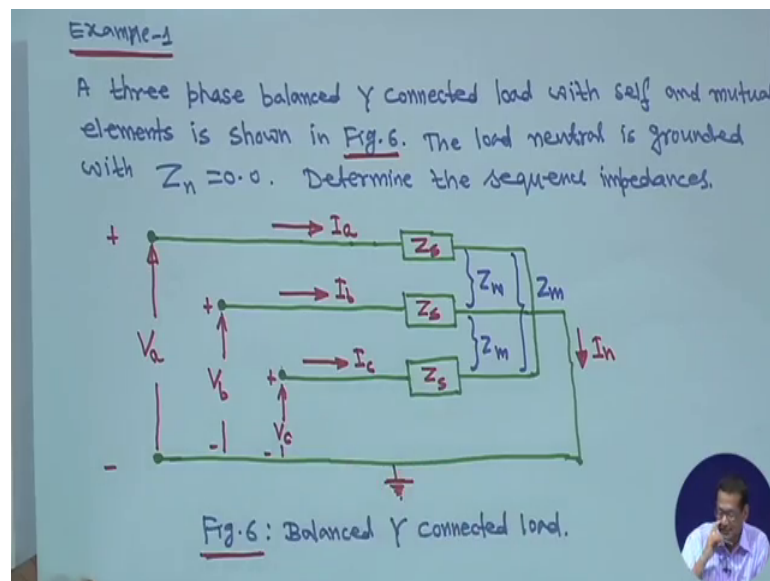 Example-1
A three phase balanced Y connected load with self and mutual
elements is shown in Fig.6. The load neutral is grounded
with Zn = 0.0. Determine the sequence impedances.
+ Ia Zs
Zm Zm
+ Ib Zs
Va Vb Zm In
+ Ic Zs
Vc
- - -
Fig.6: Balanced Y connected load.